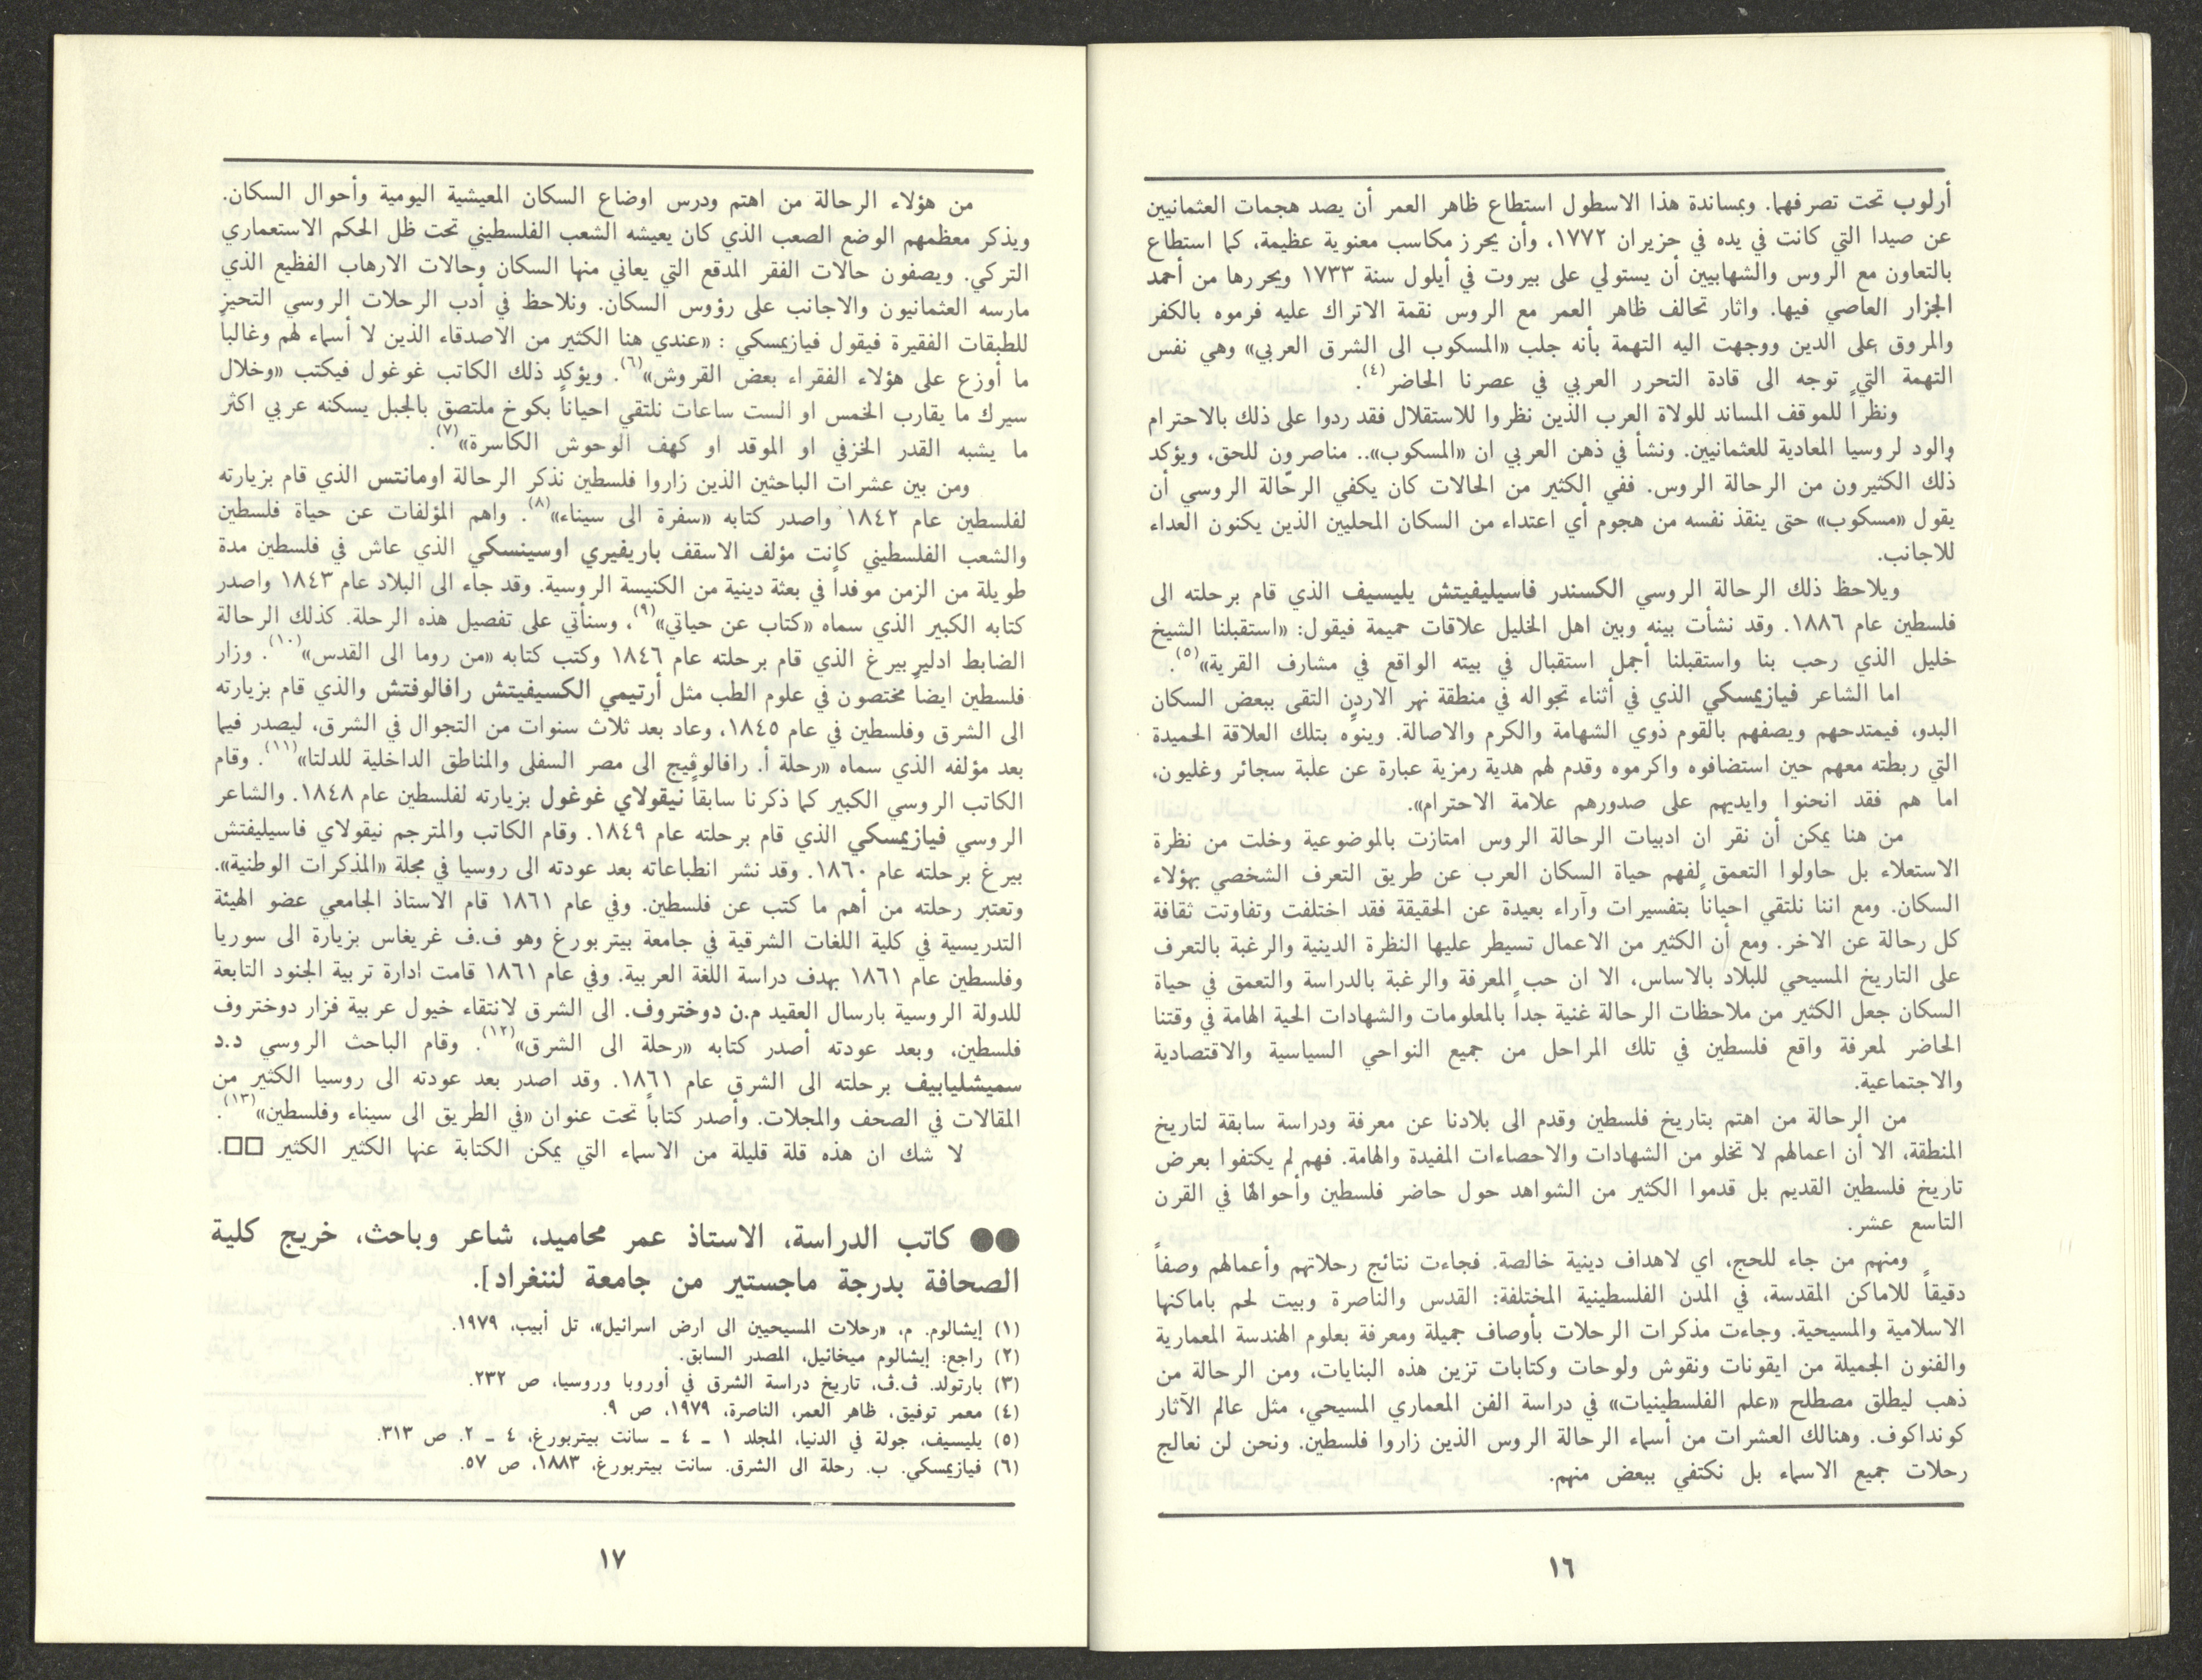 أرلوب تحت تصرفهما. وبمساندة هذا الاسطول استطاع ظاهر العمر أن يصد هجمات العثمانيين
عن صيدا التي كانت في يده في حزيران ١٧٧٢، وأن يحرز مكاسب معنوية عظيمة، كما استطاع
بالتعاون مع الروس والشهابيين أن يستولي على بيروت في أيلول سنة ١٧٣٣ ويحررها من أحمد
الجزار العاصي فيها. واثار تحالف ظاهر العمر مع الروس نقمة الاتراك عليه فرموه بالكفر
والمروق على الدين ووجهت اليه التهمة بأنه جلب «المسكوب الى الشرق العربي» وهي نفس
التهمة التي توجه الى قادة التحرر العربي في عصرنا الحاضر(٤).
ونظراً للموقف المساند للولاة العرب الذين نظروا للاستقلال فقد ردوا على ذلك بالاحترام
والود لروسيا المعادية للعثمانيين. ونشأ في ذهن العربي ان «المسكوب».. مناصرون للحق، ويؤكد
ذلك الكثيرون من الرحالة الروس. ففي الكثير من الحالات كان يكفي الرحّالة الروسي أن
يقول «مسكوب» حتى ينقذ نفسه من هجوم أي اعتداء من السكان المحليين الذين يكنون العداء
للاجانب.
ويلاحظ ذلك الرحالة الروسي الكسندر فاسيليفيتش يليسيف الذي قام برحلته الى
فلسطين عام ١٨٨٦. وقد نشأت بينه وبين اهل الخليل علاقات حميمة فيقول: «استقبلنا الشيخ
خليل الذي رحب بنا واستقبلنا أجمل استقبال في بيته الواقع في مشارف القرية»(٥).
اما الشاعر فيازيمسكي الذي في أثناء تجواله في منطقة نهر الاردن التقى ببعض السكان
البدو، فيمتدحهم ويصفهم بالقوم ذوي الشهامة والكرم والاصالة. وينوّه بتلك العلاقة الحميدة
التي ربطته معهم حين استضافوه واكرموه وقدم لهم هدية رمزية عبارة عن علبة سجائر وغليون،
اما هم فقد انحنوا وايديهم على صدورهم علامة الاحترام».
من هنا يمكن أن نقر ان ادبيات الرحالة الروس امتازت بالموضوعية وخلت من نظرة
الاستعلاء بل حاولوا التعمق لفهم حياة السكان العرب عن طريق التعرف الشخصي بهؤلاء
السكان. ومع اننا نلتقي احياناً بتفسيرات وآراء بعيدة عن الحقيقة فقد اختلفت وتفاوتت ثقافة
كل رحالة عن الاخر. ومع أن الكثير من الاعمال تسيطر عليها النظرة الدينية والرغبة بالتعرف
على التاريخ المسيحي للبلاد بالاساس، الا ان حب المعرفة والرغبة بالدراسة والتعمق في حياة
السكان جعل الكثير من ملاحظات الرحالة غنية جداً بالمعلومات والشهادات الحية الهامة في وقتنا
الحاضر لمعرفة واقع فلسطين في تلك المراحل من جميع النواحي السياسية والاقتصادية
والاجتماعية.
من الرحالة من اهتم بتاريخ فلسطين وقدم الى بلادنا عن معرفة ودراسة سابقة لتاريخ
المنطقة، الا أن اعمالهم لا تخلو من الشهادات والاحصاءات المفيدة والهامة. فهم لم يكتفوا بعرض
تاريخ فلسطين القديم بل قدموا الكثير من الشواهد حول حاضر فلسطين وأحوالها في القرن
التاسع عشر.
ومنهم من جاء للحج، اي لاهداف دينية خالصة. فجاءت نتائج رحلاتهم وأعمالهم وصفاً
دقيقاً للاماكن المقدسة، في المدن الفلسطينية المختلفة: القدس والناصرة وبيت لحم باماكنها
الاسلامية والمسيحية. وجاءت مذكرات الرحلات بأوصاف جميلة ومعرفة بعلوم الهندسة المعمارية
والفنون الجميلة من ايقونات ونقوش ولوحات وكتابات تزين هذه البنايات، ومن الرحالة من
ذهب ليطلق مصطلح «علم الفلسطينيات» في دراسة الفن المعماري المسيحي، مثل عالم الآثار
كونداكوف. وهنالك العشرات من أسماء الرحالة الروس الذين زاروا فلسطين. ونحن لن نعالج
رحلات جميع الاسماء بل نكتفي ببعض منهم.
١٦
من هؤلاء الرحالة من اهتم ودرس اوضاع السكان المعيشية اليومية وأحوال السكان.
ويذكر معظمهم الوضع الصعب الذي كان يعيشه الشعب الفلسطيني تحت ظل الحكم الاستعماري
التركي. ويصفون حالات الفقر المدقع التي يعاني منها السكان وحالات الارهاب الفظيع الذي
مارسه العثمانيون والاجانب على رؤوس السكان. ونلاحظ في أدب الرحلات الروسي التحيز
للطبقات الفقيرة فيقول فيازيمسكي : «عندي هنا الكثير من الاصدقاء الذين لا أسماء لهم وغالباً
ما أوزع على هؤلاء الفقراء بعض القروش»(٦). ويؤكد ذلك الكاتب غوغول فيكتب «وخلال
سيرك ما يقارب الخمس او الست ساعات نلتقي احياناً بكوخ ملتصق بالجبل يسكنه عربي اكثر
ما يشبه القدر الخزفي او الموقد او كهف الوحوش الكاسرة»(٧).
ومن بين عشرات الباحثين الذين زاروا فلسطين نذكر الرحالة اومانتس الذي قام بزيارته
لفلسطين عام ١٨٤٢ واصدر كتابه «سفرة الى سيناء»(٨). واهم المؤلفات عن حياة فلسطين
والشعب الفلسطيني كانت مؤلف الاسقف باريفيري اوسينسكي الذي عاش في فلسطين مدة
طويلة من الزمن موفداً في بعثة دينية من الكنيسة الروسية. وقد جاء الى البلاد عام ١٨٤٣ واصدر
كتابه الكبير الذي سماه «كتاب عن حياتي»(٩)، وسنأتي على تفصيل هذه الرحلة. كذلك الرحالة
الضابط ادلير بيرغ الذي قام برحلته عام ١٨٤٦ وكتب كتابه «من روما الى القدس»(١٠). وزار
فلسطين ايضاً مختصون في علوم الطب مثل أرتيمي الكسيفيتش رافالوفتش والذي قام بزيارته
الى الشرق وفلسطين في عام ١٨٤٥، وعاد بعد ثلاث سنوات من التجوال في الشرق، ليصدر فيما
بعد مؤلفه الذي سماه «رحلة أ. رافالوڤيج الى مصر السفلى والمناطق الداخلية للدلتا»(١١). وقام
الكاتب الروسي الكبير كما ذكرنا سابقاً نيقولاي غوغول بزيارته لفلسطين عام ١٨٤٨. والشاعر
الروسي فيازيمسكي الذي قام برحلته عام ١٨٤٩. وقام الكاتب والمترجم نيقولاي فاسيليفتش
بيرغ برحلته عام ١٨٦٠. وقد نشر انطباعاته بعد عودته الى روسيا في مجلة «المذكرات الوطنية».
وتعتبر رحلته من أهم ما كتب عن فلسطين. وفي عام ١٨٦١ قام الاستاذ الجامعي عضو الهيئة
التدريسية في كلية اللغات الشرقية في جامعة بيتربورغ وهو ف.ف غريغاس بزيارة الى سوريا
وفلسطين عام ١٨٦١ بهدف دراسة اللغة العربية. وفي عام ١٨٦١ قامت ادارة تربية الجنود التابعة
للدولة الروسية بارسال العقيد م.ن دوختروف. الى الشرق لانتقاء خيول عربية فزار دوختروف
فلسطين، وبعد عودته أصدر كتابه «رحلة الى الشرق»(١٢). وقام الباحث الروسي د.د
سميشليابيف برحلته الى الشرق عام ١٨٦١. وقد اصدر بعد عودته الى روسيا الكثير من
المقالات في الصحف والمجلات. وأصدر كتاباً تحت عنوان «في الطريق الى سيناء وفلسطين»(١٣).
لا شك ان هذه قلة قليلة من الاسماء التي يمكن الكتابة عنها الكثير الكثير □□.
●● كاتب الدراسة، الاستاذ عمر محاميد، شاعر وباحث، خريج كلية
الصحافة بدرجة ماجستير من جامعة لننغراد].
(١) إيشالوم. م، «رحلات المسيحيين الى ارض اسرائيل»، تل أبيب، ١٩٧٩.
(٢) راجع: إيشالوم ميخائيل، المصدر السابق.
(٣) بارتولد. ڤ.ڤ، تاريخ دراسة الشرق في أوروبا وروسيا، ص ٢٣٢.
(٤) معمر توفيق، ظاهر العمر، الناصرة، ١٩٧٩، ص ٩.
(٥) يليسيف، جولة في الدنيا، المجلد ١ ــ ٤ ــ سانت بيتربورغ، ٤ ــ ٢. ص ٣١٣.
(٦) فيازيمسكي. ب. رحلة الى الشرق. سانت بيتربورغ، ١٨٨٣، ص ٥٧.
١٧